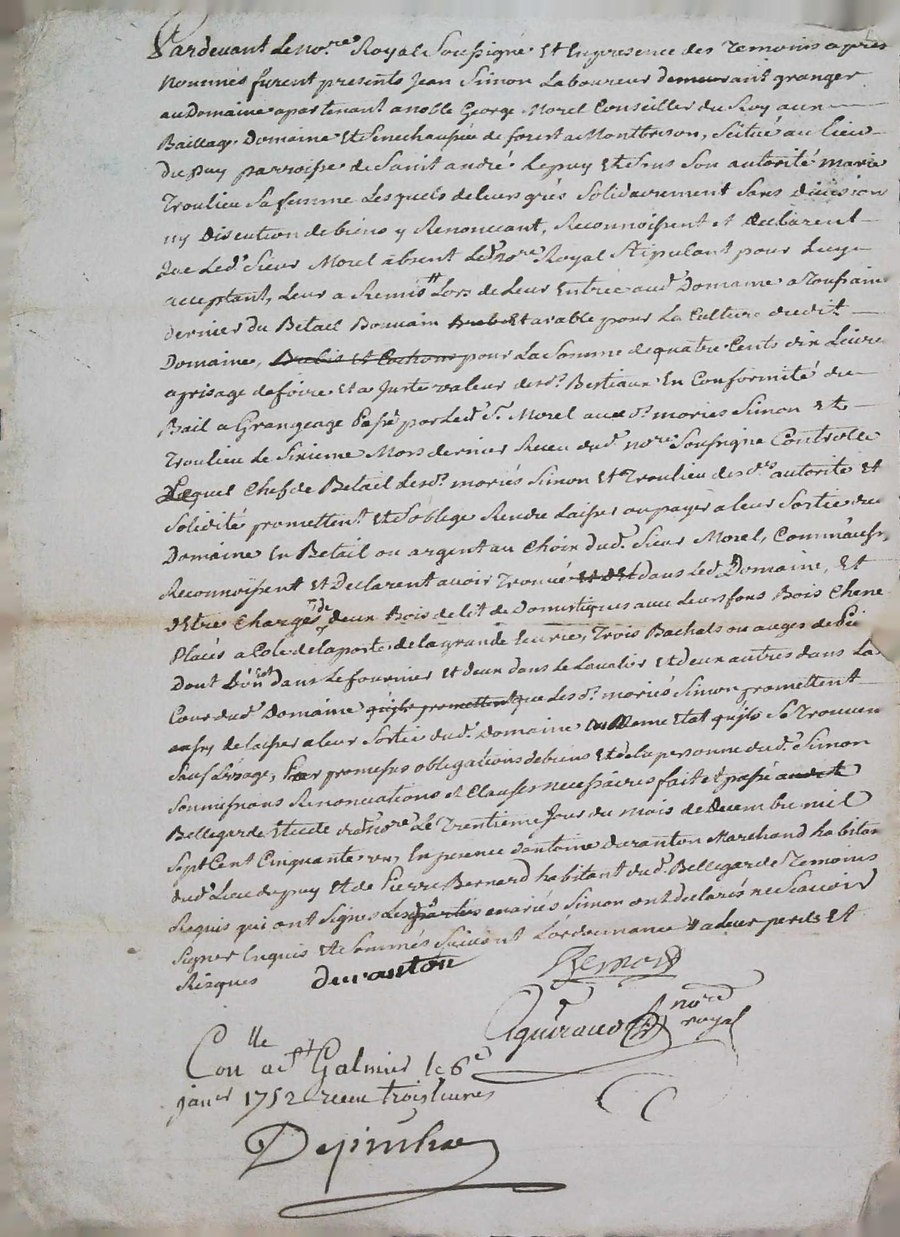 Pardevant Le no.re Royal Soussigné Et En presence des Temoins apres
nommés furent presents Jean Simon Laboureur demeurant granger
au Domaine apartenant a noble George Morel Conseiller du Roy aux
Bailliage Domaine Et Senechaussée de forest a Montbrison, Scitué au Lieu
Du puy parroisse de Saint andré Le puy Et Sous Son autorité marie
Troulieu Sa femme Lesquels de leurs grés Solidairement Sans division
ny Discution de biens y Renoncant, Reconnoissent et declarent
Que Led. Sieur Morel absent Led. no.re Royal Stipulant pour Luy
acceptant, Leur a Remis Lors de Leur Entrée aud. Domaine a Toussaint
dernier du Betail Bouvain Et arable pour La Culture dudit
Domaine, Brebis Et Cochons pour La Somme de quatre Cents dix Livres
a prisage de foire Et a Juste valeur desd. Bestiaux En Conformité du
Bail a Grangeage Passé par Led. S.r Morel auxd. mariés Simon Et
Troulieu Le Sixieme Mars dernier Receu dud. no.re Soussigné Controllé
Lequel Chef de Betail Lesd. mariés Simon Et Troulieu desd. autorité Et
Solidité promettent Et S'oblige Rendre Laisser ou payer a leur Sortie du
Domaine En Betail ou argent au Choix dud. Sieur Morel, Comm'aussy
Reconnoissent Et Declarent avoir Trouvé dans Led. Domaine, Et
Etre Chargés de deux Bois de lit de Domestiques avec Leurs fons Bois Chene
Placés a Coté de la porte de la grande Ecurie, Trois Bachats ou auges de Pin
Dont L'un Est dans Le fournier Et deux dans Le Et deux autres dans La
Cour dud. Domaine qu'ils promettent que Lesd. mariés Simon promettent
aussy de laisser a leur Sortie dud. Domaine au Meme Etat qu'ils Se Trouvent
Sauf L'usage, Par promesses obligations de biens Et de la personne dud. Simon
Soumissions Renonciations Et Clauses necessaires fait Et passé aud.
Bellegarde Etude dud. no.re Le Trentieme Jour du Mois de Decembre mil
Sept Cent Cinquante un, En presence d'antoine duranton Marchand habitant
dud. Lieu du puy Et de Pierre Bernard habitant dud. Bellegarde Temoins
Requis qui ont Signés Lesd. parties mariés Simon ont declarés ne Scavoir
Signer Enquis Et Sommés Suivant L'ordonnance a leur perils Et
Risques
duranton Bernard
Aguiraud no.re royal
Con.lle a S.t Galmier le 6.e
janv.r 1752 receu trois livres